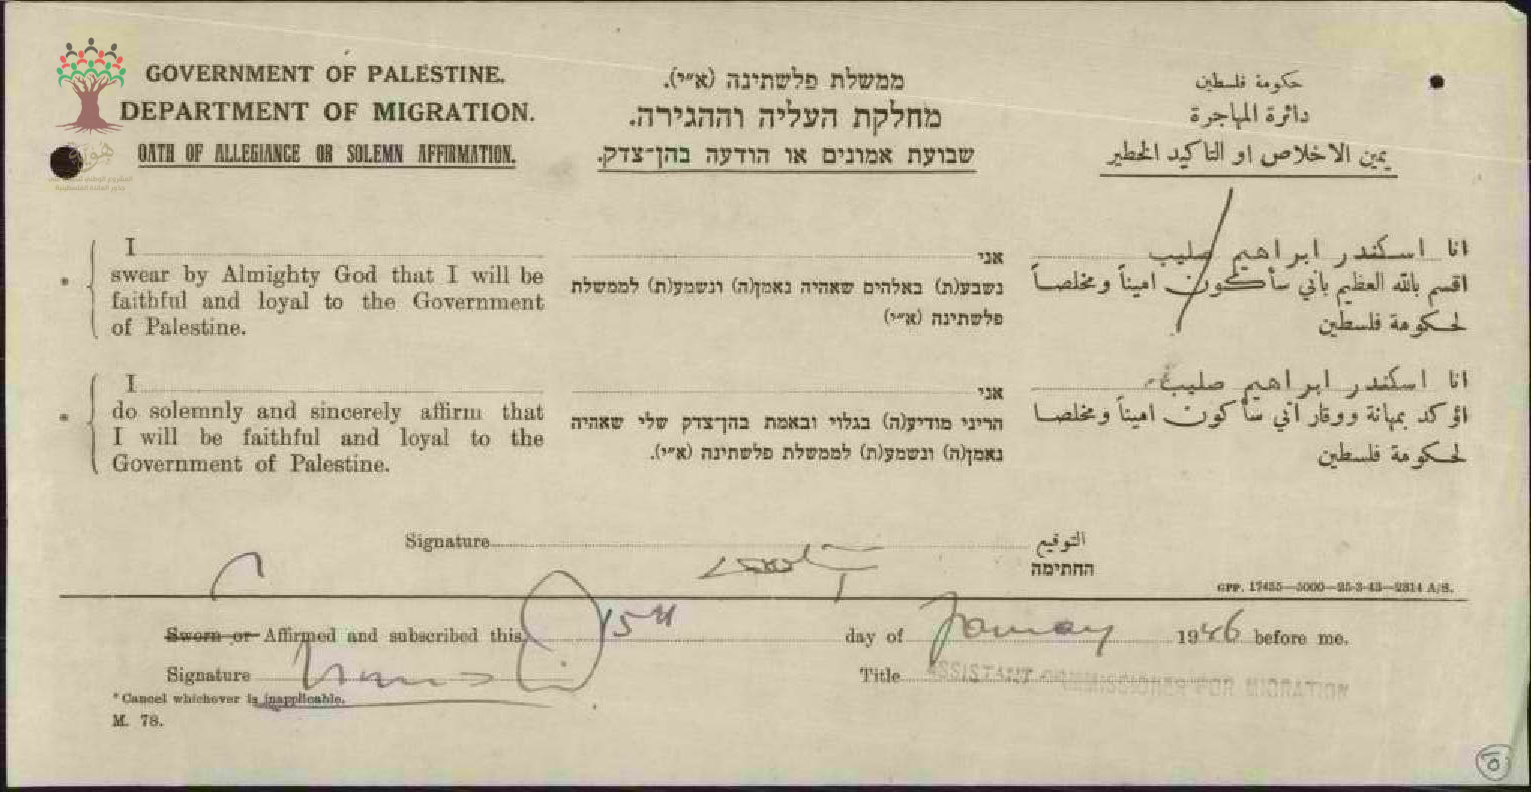 GOVERNMENT OF PALESTINE.
DEPARTMENT OF MIGRATION.
OATH OF ALLEGIANCE OR SOLEMN AFFIRMATION.
ממשלת פלשתינה (א״י).
מחלקת העליה וההגירה.
שבועת אמונים או הודעה בהן־צדק.
حكومة فلسطين
دائرة المهاجرة
يمين الاخلاص او التاكيد الخطير
هوية
I
swear by Almighty God that I will be
faithful and loyal to the Government
of Palestine.
אני
נשבע(ת) באלהים שאהיה נאמן(ה) ונשמע(ת) לממשלת
פלשתינה (א״י)
انا اسكندر ابراهيم صليب
اقسم بالله العظيم باني سأكون اميناً ومخلصاً
لحكومة فلسطين
I
do solemnly and sincerely affirm that
I will be faithful and loyal to the
Government of Palestine.
אני
הריני מודיע(ה) בגלוי ובאמת בהן־צדק שלי שאהיה
נאמן(ה) ונשמע(ת) לממשלת פלשתינה (א״י).
انا اسكندر ابراهيم صليب
اؤكد بمهانة ووقار اني سأكون اميناً ومخلصا
لحكومة فلسطين
Signature
التوقيع
החתימה
GPP. 17455—5000—25-3-43—2314 A/S.
Sworn or Affirmed and subscribed this 15th day of January 1946 before me.
Signature
Title ASSISTANT COMMISSIONER FOR MIGRATION
* Cancel whichever is inapplicable.
M. 78.